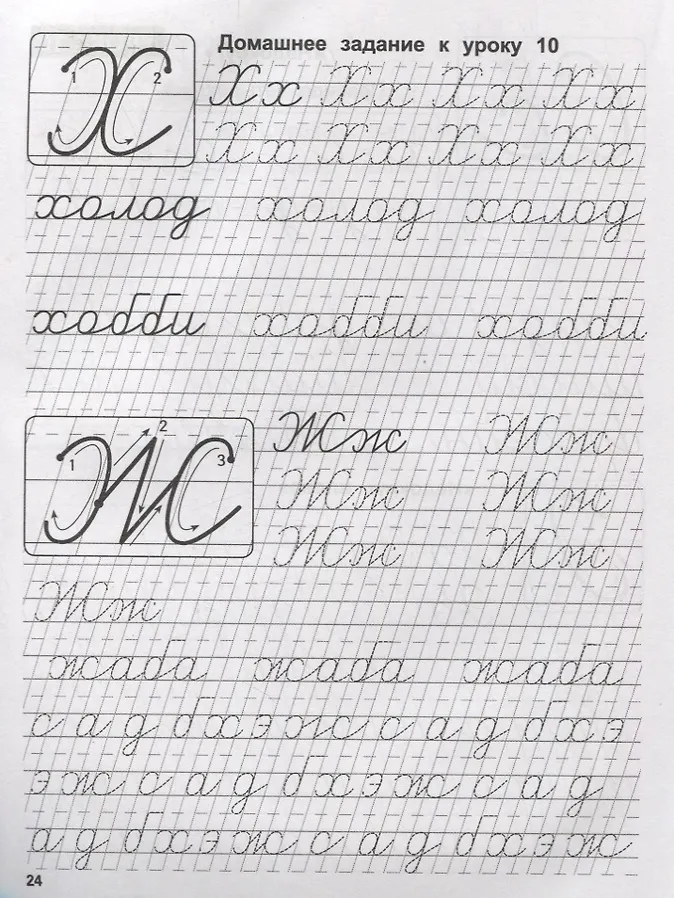 Домашнее задание к уроку 10
1 2
Хх Хх Хх Хх
Хх Хх Хх Хх
холод холод холод
хобби хобби хобби
1 2 3
Жж Жж
Жж Жж
Жж Жж
Жж
жаба жаба жаба
с а д б х э ж с а д б х э
э ж с а д б х э ж с а д
а д б х э ж с а д б х э ж
24